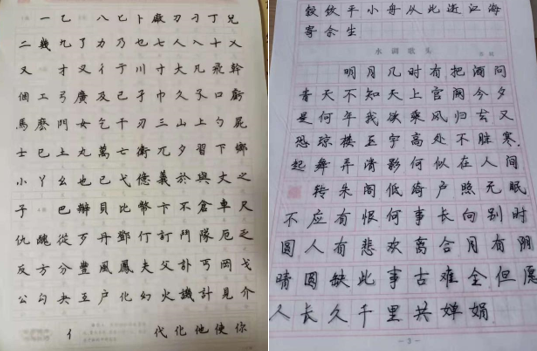 一 乙 八 匕 卜 廠 刃 刁 丁
二 幾 九 了 力 乃 也 七 人 入 十 乂
又 才 又 彳 于 川 寸 大 凡 飛 幹
個 工 弓 廣 及 己 孑 巾 久 孓 口 虧
馬 麽 門 女 乞 千 刃 三 山 上 勺 屍
士 巳 土 丸 萬 亡 衛 兀 夕 習 下 鄉
小 丫 幺 也 已 弋 億 義 於 與 大 之
子 巴 辦 貝 比 幣 卞 不 倉 車 尺
仇 醜 從 歹 丹 鄧 仃 訂 鬥 隊 厄 乏
反 方 分 豐 風 鳳 夫 父 訃 丐 岡 戈
公 勾 夬 互 戶 化 幻 火 譏 計 見 介
亻 代 化 他 使 你
平小舟从此逝江海
寄余生
水调歌头
明月几时有把酒问
青天不知天上宫阙今夕
是何年我欲乘风归去又
恐琼楼玉宇高处不胜寒
起舞弄清影何似在人间
转朱阁低绮户照无眠
不应有恨何事长向别时
圆人有悲欢离合月有阴
晴圆缺此事古难全但愿
人长久千里共婵娟
- 3 -